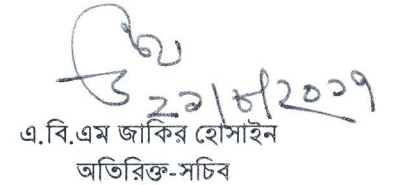 ২১/৮/২০১৭
এ.বি.এম জাকির হোসাইন
অতিরিক্ত-সচিব